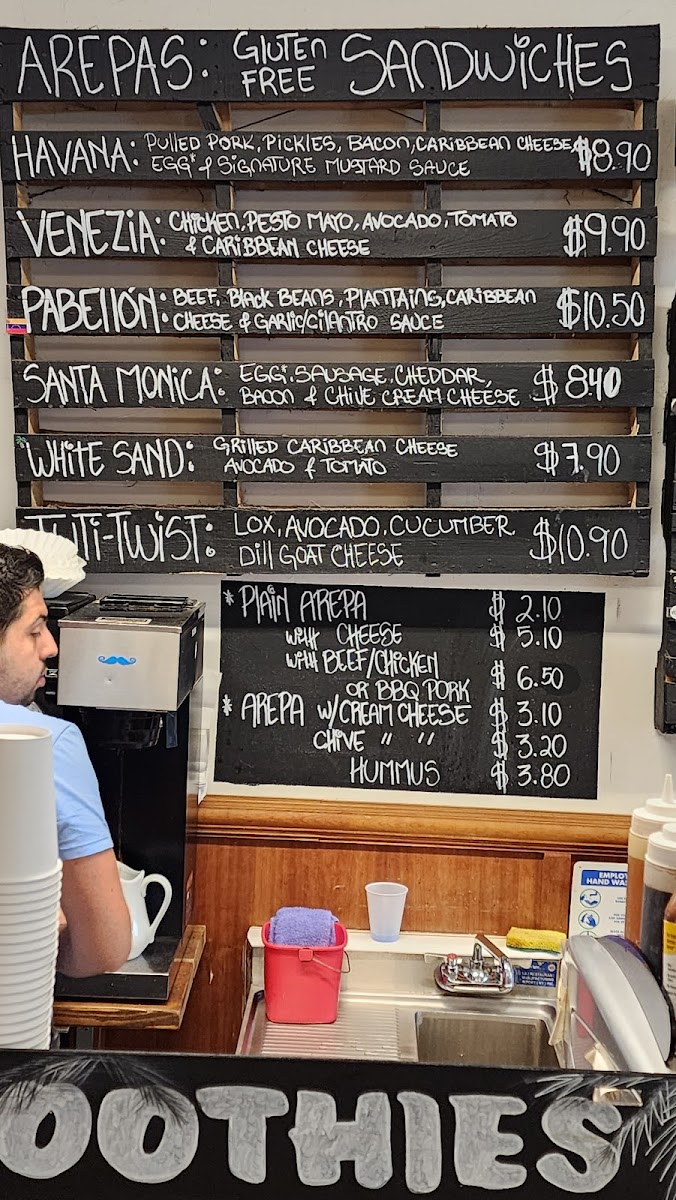 AREPAS: GLUTEN FREE SANDWICHES
HAVANA: PULLED PORK, PICKLES, BACON, CARIBBEAN CHEESE, $8.90
EGG* & SIGNATURE MUSTARD SAUCE
VENEZIA: CHICKEN, PESTO MAYO, AVOCADO, TOMATO $9.90
& CARIBBEAN CHEESE
PABELLÓN: BEEF, BLACK BEANS, PLANTAINS, CARIBBEAN $10.50
CHEESE & GARLIC/CILANTRO SAUCE
SANTA MONICA: EGG*, SAUSAGE, CHEDDAR, $8.40
BACON & CHIVE CREAM CHEESE
*WHITE SAND: GRILLED CARIBBEAN CHEESE $7.90
AVOCADO & TOMATO
TUTI-TWIST: LOX, AVOCADO, CUCUMBER, $10.90
DILL GOAT CHEESE
* PLAIN AREPA $ 2.10
WITH CHEESE $ 5.10
WITH BEEF/CHICKEN
OR BBQ PORK $ 6.50
* AREPA W/CREAM CHEESE $ 3.10
CHIVE " " $ 3.20
HUMMUS $ 3.80
HAND WA
OOTHIES